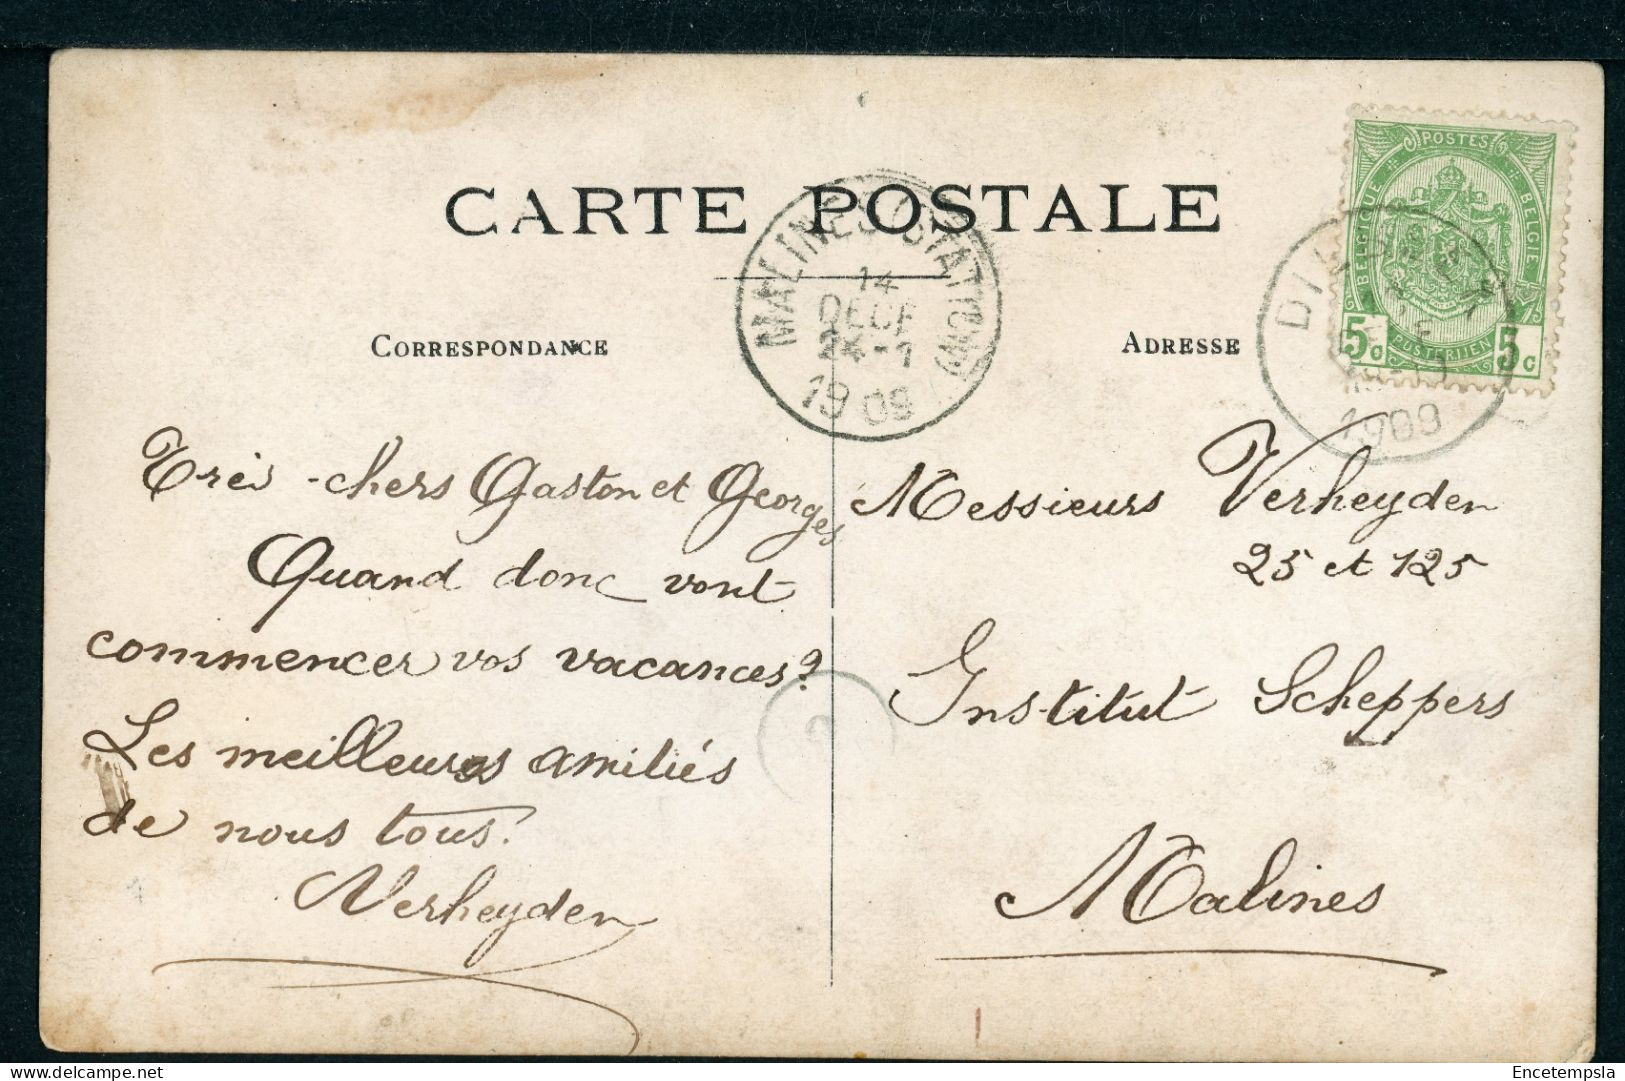 CARTE POSTALE
MALINES (STATION)
14
DECE
1909
POSTES
BELGIQUE
BELGIE
5c
POSTERIJEN
5c
1909
CORRESPONDANCE
ADRESSE
Très-chers Gaston et Georges
Quand donc vont
commencer vos vacances?
Les meilleures amitiés
de nous tous.
Verheyden
Messieurs Verheyden
25 et 125
Institut Scheppers
Malines
delcampe.net
Encetempsla